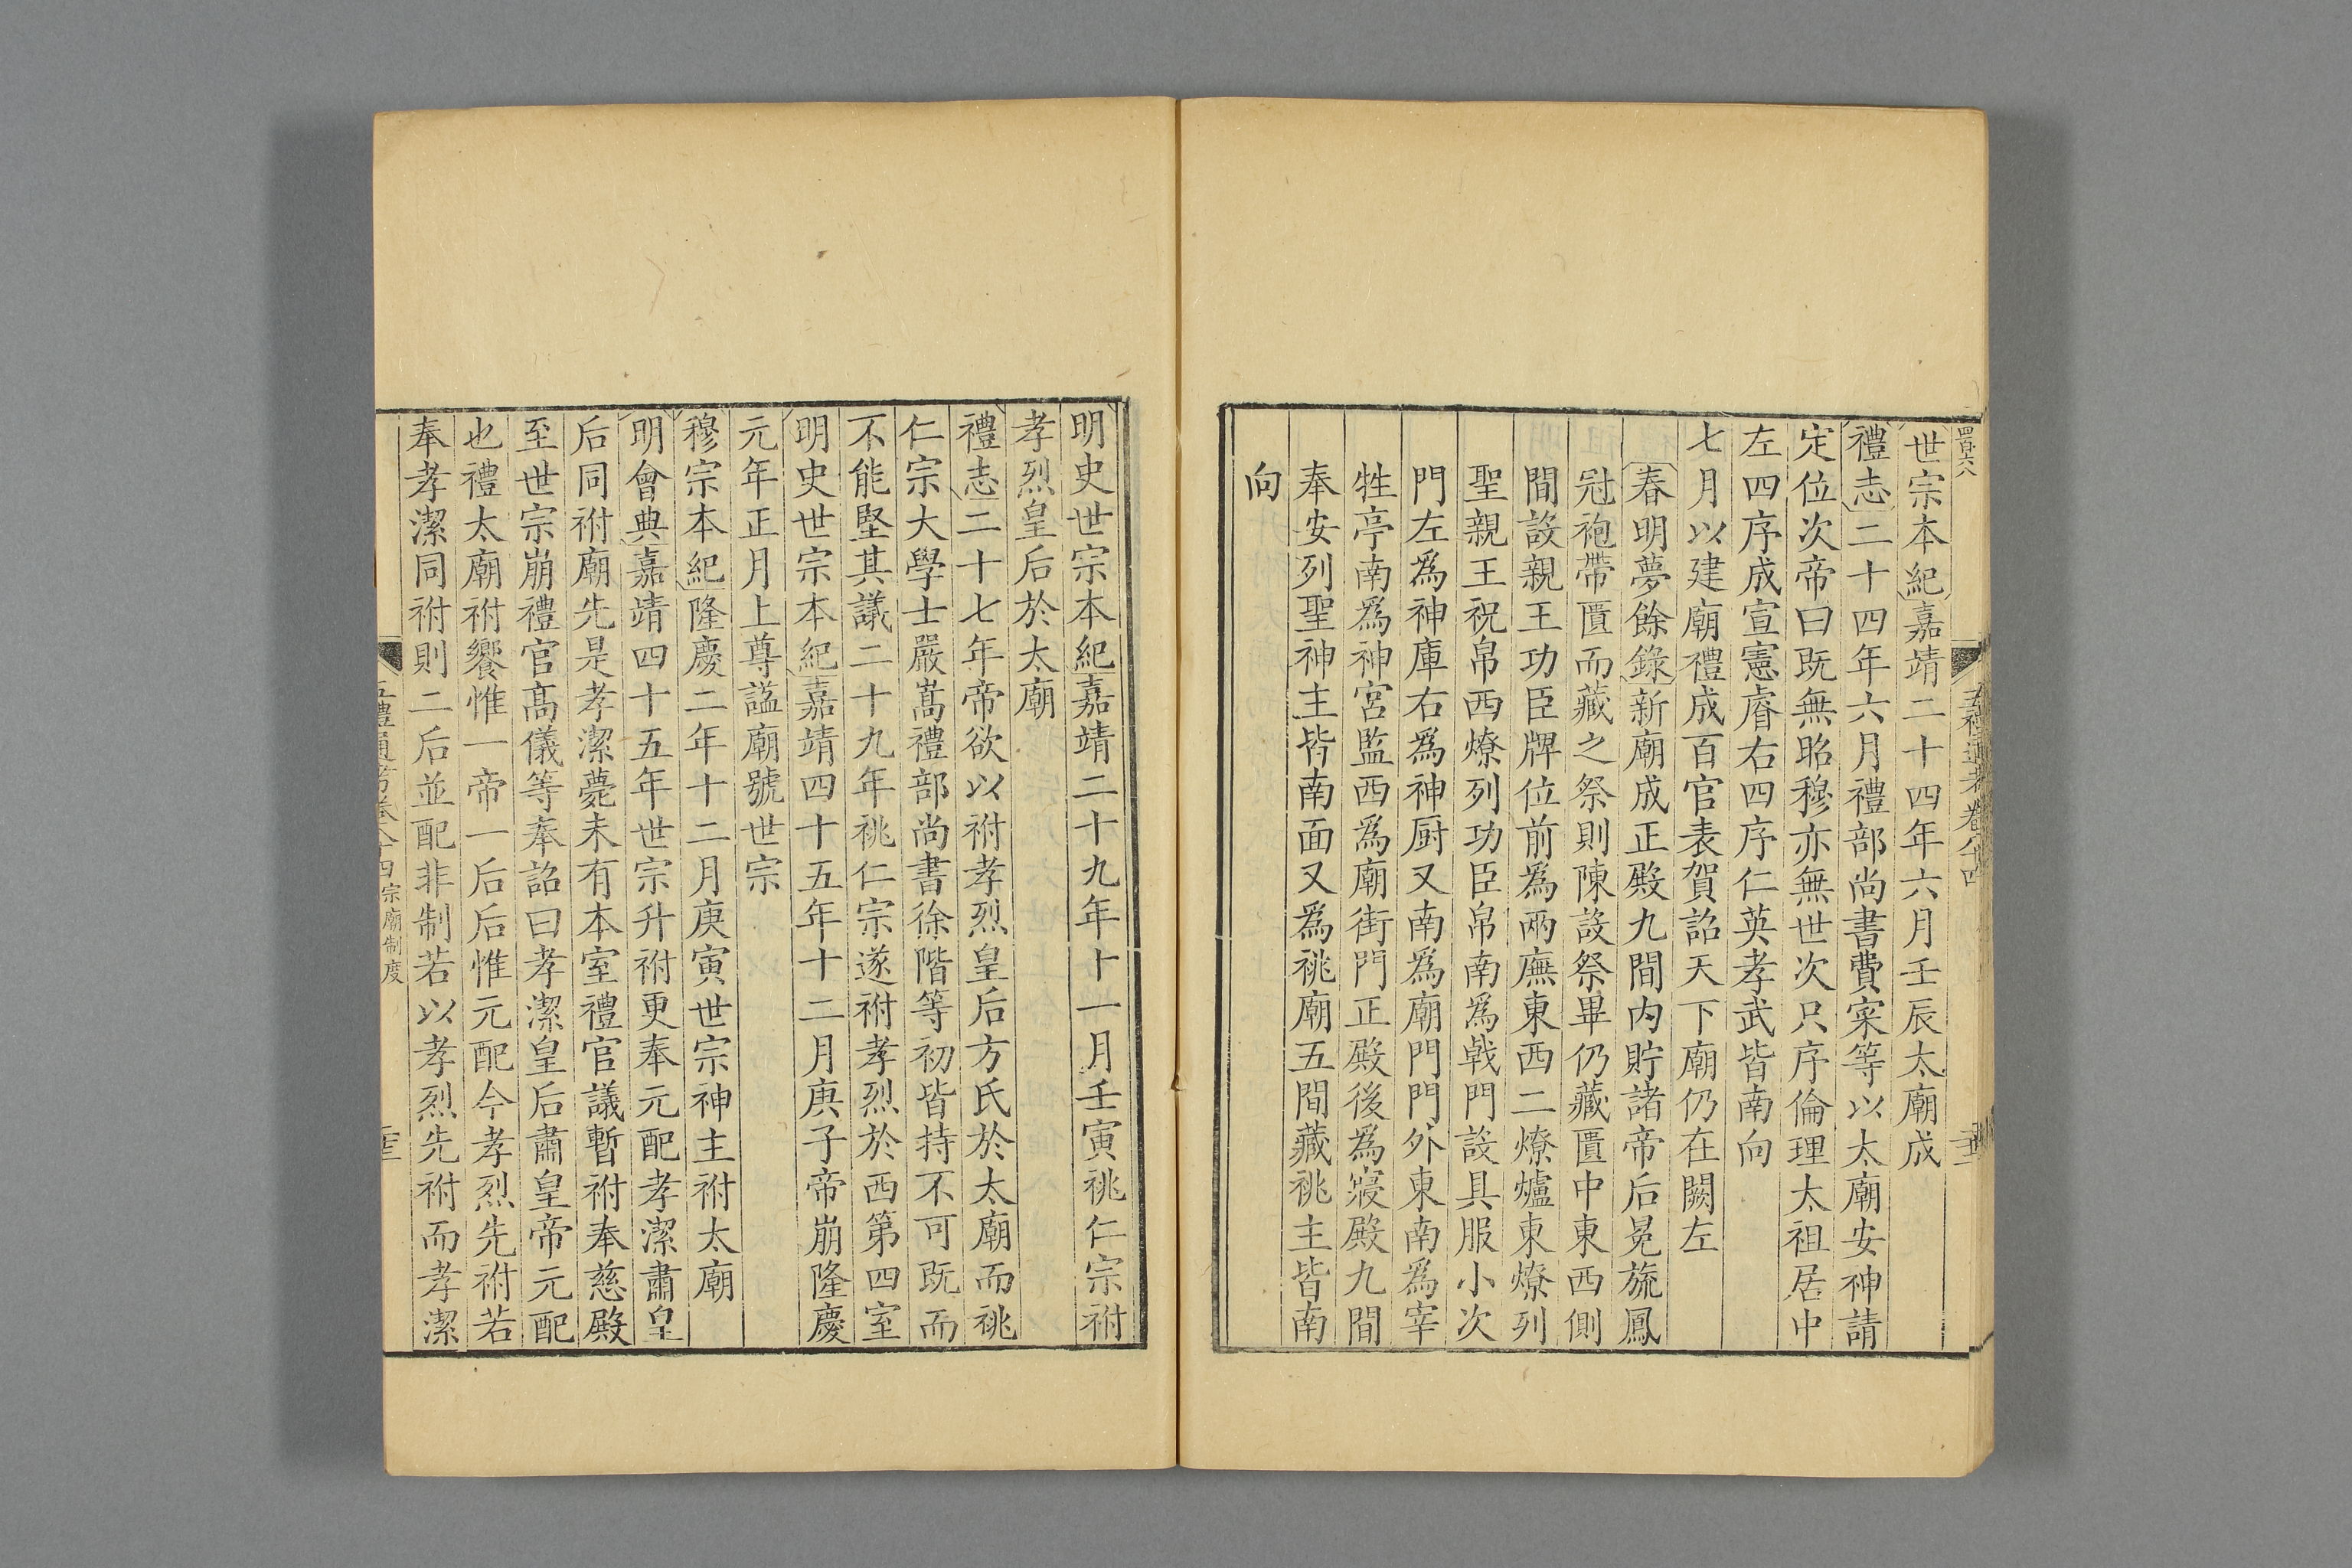 四百六八
五禮通考卷八十四
世宗本紀嘉靖二十四年六月壬辰太廟成
禮志二十四年六月禮部尚書費寀等以太廟安神請
定位次帝曰既無昭穆亦無世次只序倫理太祖居中
左四序成宣憲睿右四序仁英孝武皆南向
七月以建廟禮成百官表賀詔天下廟仍在闕左
春明夢餘錄新廟成正殿九間內貯諸帝后冕旒鳳
冠袍帶匱而藏之祭則陳設祭畢仍藏匱中東西側
間設親王功臣牌位前爲兩廡東西二燎爐東燎列
聖親王祝帛西燎列功臣帛南爲戟門設具服小次
門左爲神庫右爲神厨又南爲廟門門外東南爲宰
牲亭南爲神宮監西爲廟街門正殿後爲寢殿九間
奉安列聖神主皆南面又爲祧廟五間藏祧主皆南
向
明史世宗本紀嘉靖二十九年十一月壬寅祧仁宗祔
孝烈皇后於太廟
禮志二十七年帝欲以祔孝烈皇后方氏於太廟而祧
仁宗大學士嚴嵩禮部尚書徐階等初皆持不可既而
不能堅其議二十九年祧仁宗遂祔孝烈於西第四室
明史世宗本紀嘉靖四十五年十二月庚子帝崩隆慶
元年正月上尊謚廟號世宗
穆宗本紀隆慶二年十二月庚寅世宗神主祔太廟
明會典嘉靖四十五年世宗升祔更奉元配孝潔肅皇
后同祔廟先是孝潔薨未有本室禮官議暫祔奉慈殿
至世宗崩禮官高儀等奉詔曰孝潔皇后肅皇帝元配
也禮太廟祔饗惟一帝一后后惟元配今孝烈先祔若
奉孝潔同祔則二后並配非制若以孝烈先祔而孝潔
五禮通考卷八十四 宗廟制度